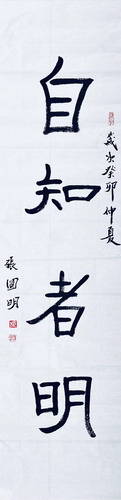 自知者明
歲次癸卯仲夏
張國明